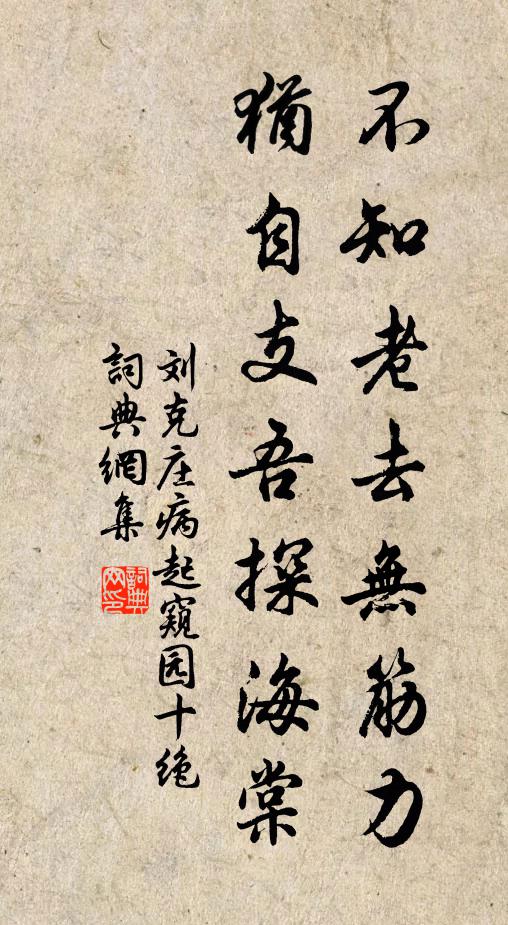 不知老去無筋力
猶自支吾探海棠
刘克庄病起窺园十绝
詞典網集
詞典
网印